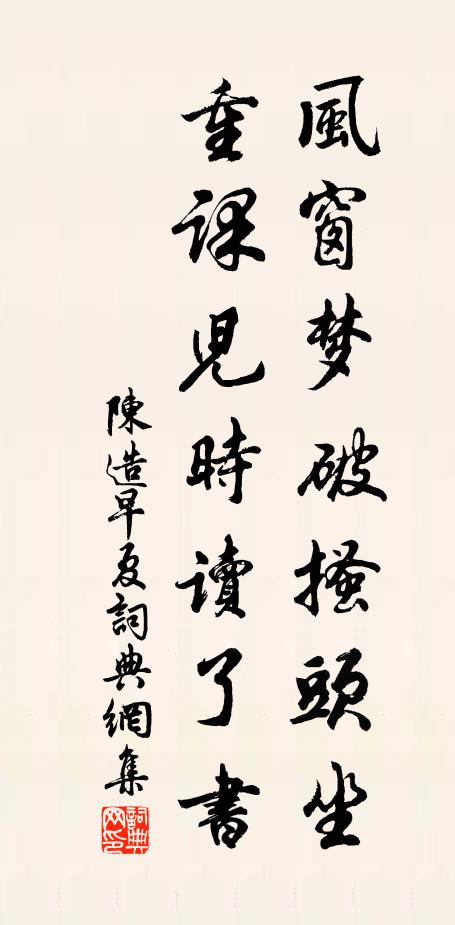 風窗梦破搔頭坐
重課児時讀了書
陳造早夏詞典網集
詞典网印